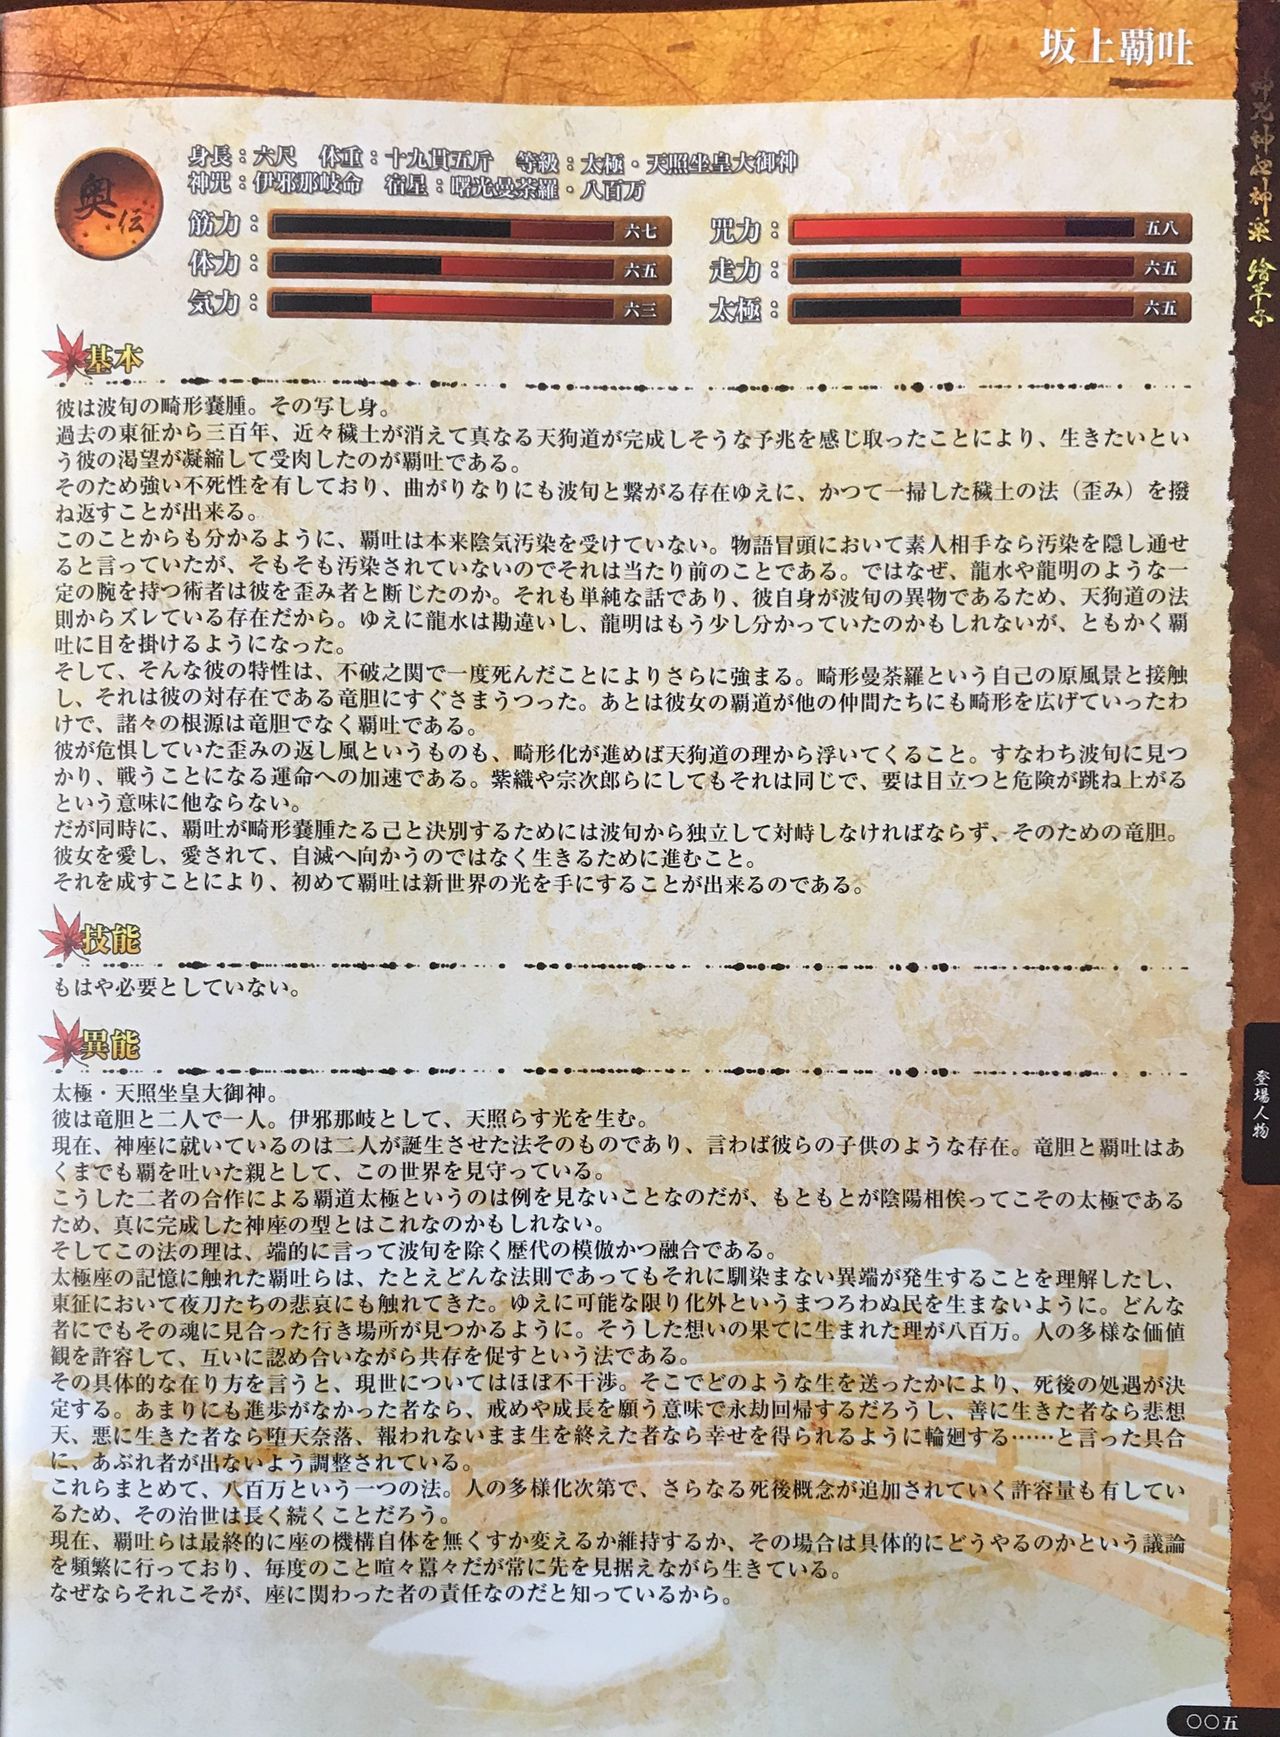 坂上覇吐
神咒神威神楽 繪草子
奥伝
身長：六尺　体重：十九貫五斤　等級：太極・天照坐皇大御神
神咒：伊邪那岐命　宿星：曙光曼荼羅・八百万
筋力：六七
体力：六五
気力：六三
咒力：五八
走力：六五
太極：六五
基本
彼は波旬の畸形嚢腫。その写し身。
過去の東征から三百年、近々穢土が消えて真なる天狗道が完成しそうな予兆を感じ取ったことにより、生きたいとい
う彼の渇望が凝縮して受肉したのが覇吐である。
そのため強い不死性を有しており、曲がりなりにも波旬と繋がる存在ゆえに、かつて一掃した穢土の法（歪み）を撥
ね返すことが出来る。
このことからも分かるように、覇吐は本来陰気汚染を受けていない。物語冒頭において素人相手なら汚染を隠し通せ
ると言っていたが、そもそも汚染されていないのでそれは当たり前のことである。ではなぜ、龍水や龍明のような一
定の腕を持つ術者は彼を歪み者と断じたのか。それも単純な話であり、彼自身が波旬の異物であるため、天狗道の法
則からズレている存在だから。ゆえに龍水は勘違いし、龍明はもう少し分かっていたのかもしれないが、ともかく覇
吐に目を掛けるようになった。
そして、そんな彼の特性は、不破之関で一度死んだことによりさらに強まる。畸形曼荼羅という自己の原風景と接触
し、それは彼の対存在である竜胆にすぐさまうつった。あとは彼女の覇道が他の仲間たちにも畸形を広げていったわ
けで、諸々の根源は竜胆でなく覇吐である。
彼が危惧していた歪みの返し風というものも、畸形化が進めば天狗道の理から浮いてくること。すなわち波旬に見つ
かり、戦うことになる運命への加速である。紫織や宗次郎らにしてもそれは同じで、要は目立つと危険が跳ね上がる
という意味に他ならない。
だが同時に、覇吐が畸形嚢腫たる己と決別するためには波旬から独立して対峙しなければならず、そのための竜胆。
彼女を愛し、愛されて、自滅へ向かうのではなく生きるために進むこと。
それを成すことにより、初めて覇吐は新世界の光を手にすることが出来るのである。
技能
もはや必要としていない。
異能
太極・天照坐皇大御神。
彼は竜胆と二人で一人。伊邪那岐として、天照らす光を生む。
現在、神座に就いているのは二人が誕生させた法そのものであり、言わば彼らの子供のような存在。竜胆と覇吐はあ
くまでも覇を吐いた親として、この世界を見守っている。
こうした二者の合作による覇道太極というのは例を見ないことなのだが、もともとが陰陽相俟ってこその太極である
ため、真に完成した神座の型とはこれなのかもしれない。
そしてこの法の理は、端的に言って波旬を除く歴代の模倣かつ融合である。
太極座の記憶に触れた覇吐らは、たとえどんな法則であってもそれに馴染まない異端が発生することを理解したし、
東征において夜刀たちの悲哀にも触れてきた。ゆえに可能な限り化外というまつろわぬ民を生まないように。どんな
者にでもその魂に見合った行き場所が見つかるように。そうした想いの果てに生まれた理が八百万。人の多様な価値
観を許容して、互いに認め合いながら共存を促すという法である。
その具体的な在り方を言うと、現世についてはほぼ不干渉。そこでどのような生を送ったかにより、死後の処遇が決
定する。あまりにも進歩がなかった者なら、戒めや成長を願う意味で永劫回帰するだろうし、善に生きた者なら悲想
天、悪に生きた者なら堕天奈落、報われないまま生を終えた者なら幸せを得られるように輪廻する……と言った具合
に、あぶれ者が出ないよう調整されている。
これらまとめて、八百万という一つの法。人の多様化次第で、さらなる死後概念が追加されていく許容量も有してい
るため、その治世は長く続くことだろう。
現在、覇吐らは最終的に座の機構自体を無くすか変えるか維持するか、その場合は具体的にどうやるのかという議論
を頻繁に行っており、毎度のこと喧々囂々だが常に先を見据えながら生きている。
なぜならそれこそが、座に関わった者の責任なのだと知っているから。
登場人物
〇〇五